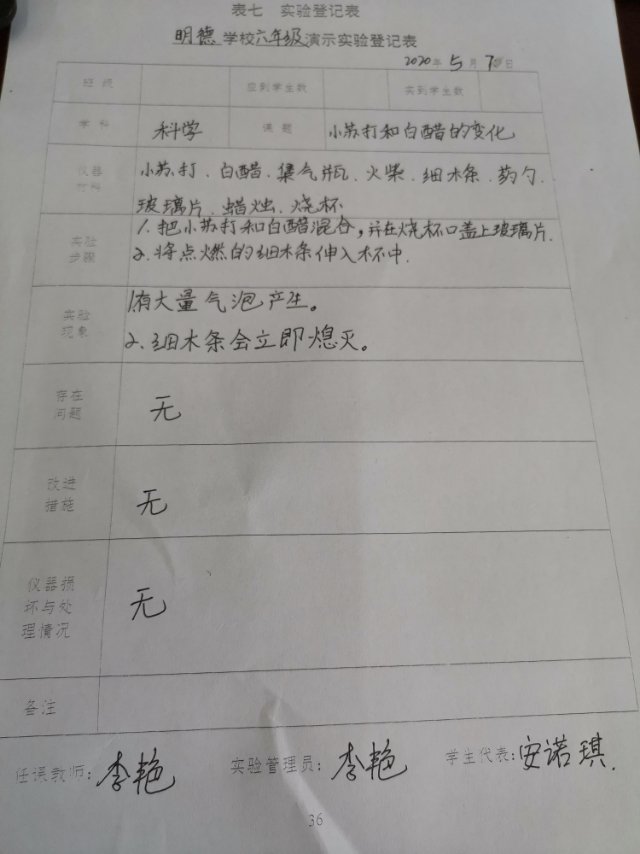 表七 实验登记表
明德学校六年级演示实验登记表
2020年5月7日
班级 应到学生数 实到学生数
学科 科学 课题 小苏打和白醋的变化
仪器材料 小苏打、白醋、集气瓶、火柴、细木条、药勺、
玻璃片、蜡烛、烧杯
实验步骤 1.把小苏打和白醋混合,并在烧杯口盖上玻璃片.
2.将点燃的细木条伸入杯中.
实验现象 1.有大量气泡产生。
2.细木条会立即熄灭。
存在问题 无
改进措施 无
仪器损坏与处理情况 无
备注
任课教师:李艳 实验管理员:李艳 学生代表:安诺琪.
36